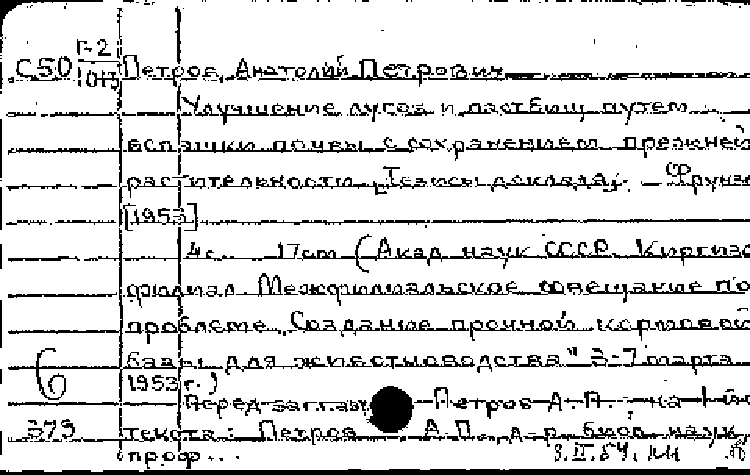 Г-2
С50 Петров, Анатолий Петрович
1043
Улучшение лугов и пастбищ путем
вспашки почвы с сохранением прежней
растительности. [Тезисы доклада]. – Фрунзе
[1953]
4с. 17см (Акад наук СССР. Киргизс
филиал. Межфилиальское совещание по
проблеме "Создание прочной кормовой
базы для животноводства" 3-7 марта
6 1953 г.)
Перед загл. Петров А.П. на 1-й с
373 текста: Петров А.П., д-р биол наук,
проф... 3.II.54.